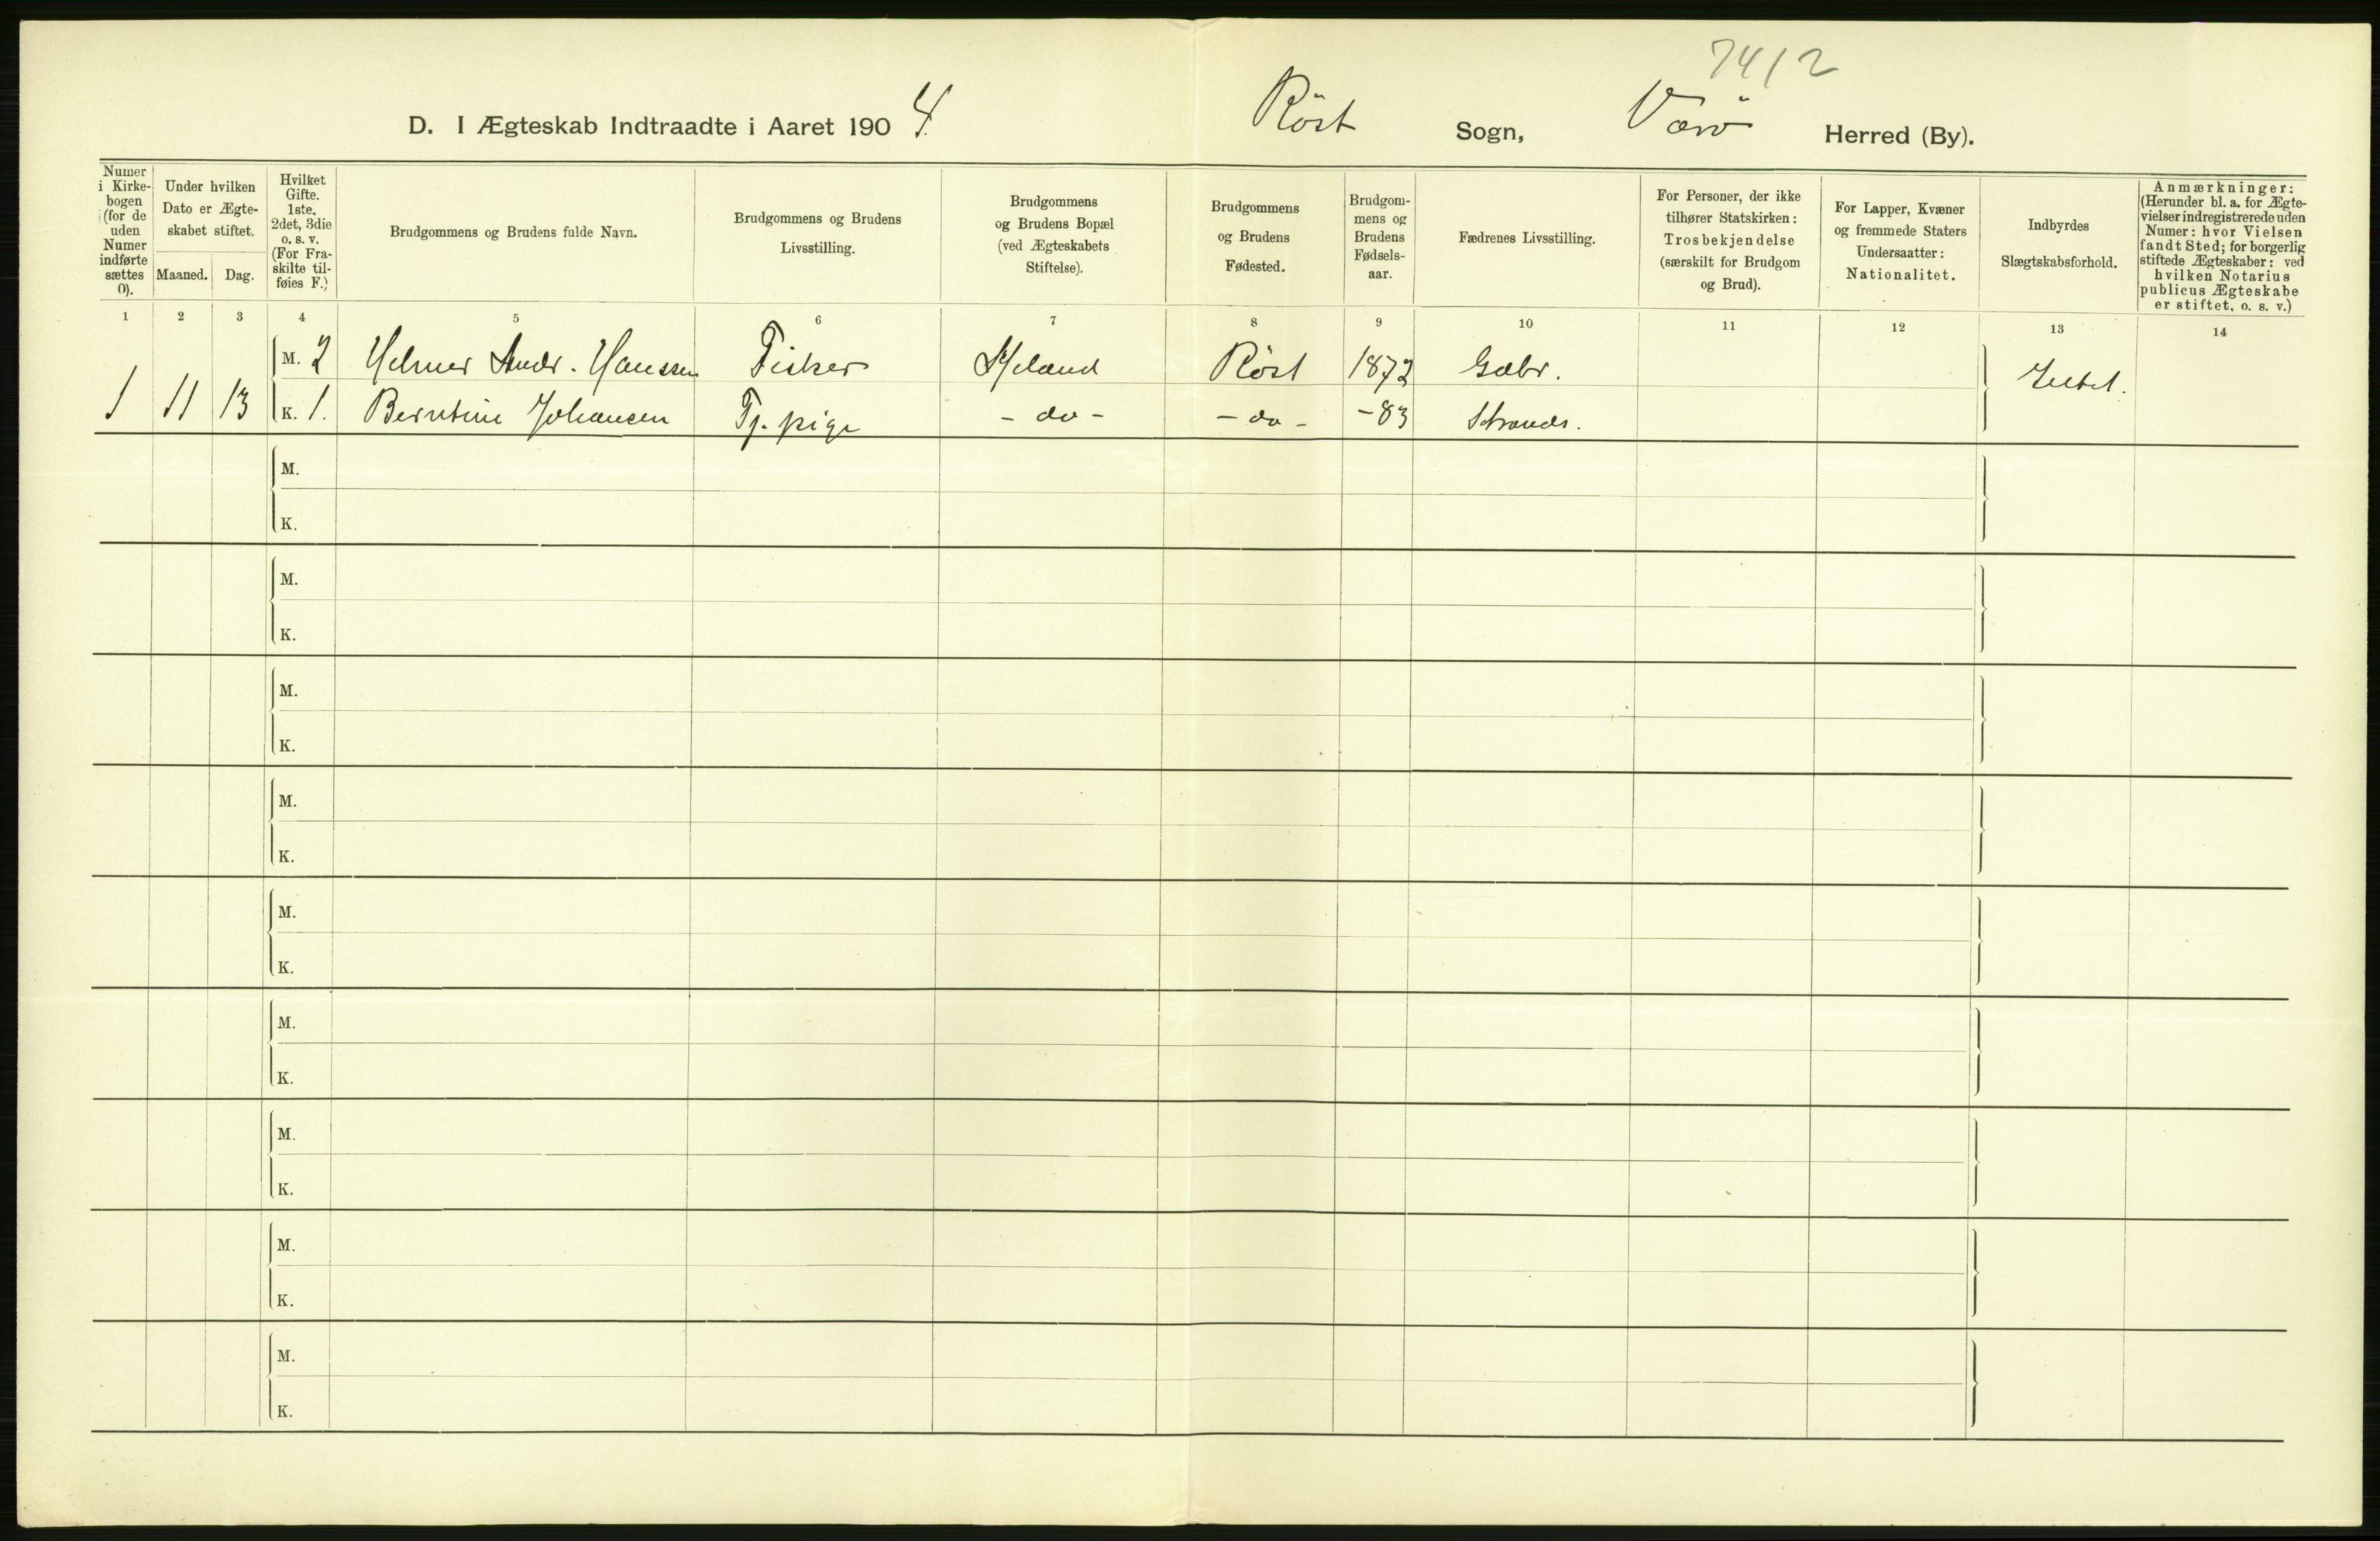 7412
D. I Ægteskab Indtraadte i Aaret 1904. Röst Sogn, Værö Herred (By).
Numer
i Kirke-
bogen
(for de
uden
Numer
indførte
sættes
0).
Under hvilken
Dato er Ægte-
skabet stiftet.
Maaned. Dag.
Hvilket
Gifte.
1ste,
2det, 3die
o. s. v.
(For Fra-
skilte til-
føies F.)
Brudgommens og Brudens fulde Navn.
Brudgommens og Brudens
Livsstilling.
Brudgommens
og Brudens Bopæl
(ved Ægteskabets
Stiftelse).
Brudgommens
og Brudens
Fødested.
Brudgom-
mens og
Brudens
Fødsels-
aar.
Fædrenes Livsstilling.
For Personer, der ikke
tilhører Statskirken:
Trosbekjendelse
(særskilt for Brudgom
og Brud).
For Lapper, Kvæner
og fremmede Staters
Undersaatter:
Nationalitet.
Indbyrdes
Slægtskabsforhold.
Anmærkninger:
(Herunder bl. a. for Ægte-
vielser indregistrerede uden
Numer: hvor Vielsen
fandt Sted; for borgerlig
stiftede Ægteskaber: ved
hvilken Notarius
publicus Ægteskabe
er stiftet, o. s. v.)
1 2 3 4 5 6 7 8 9 10 11 12 13 14
M. 2 Helmer Andr. Hanssen Fisker Röst 1872 Gabr.
1 11 13 K. 1. Berntine Johansen Tj. pige - do - - do - -83 Strands.
M.
K.
M.
K.
M.
K.
M.
K.
M.
K.
M.
K.
M.
K.
M.
K.
M.
K.